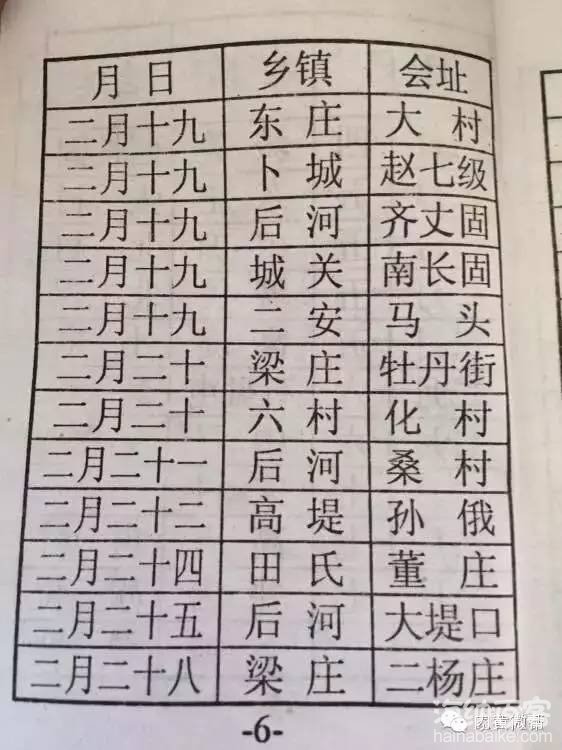 月 日 乡镇 会址
二月十九 东庄 大村
二月十九 卜城 赵七级
二月十九 后河 齐丈固
二月十九 城关 南长固
二月十九 二安 马头
二月二十 梁庄 牡丹街
二月二十 六村 化村
二月二十一 后河 桑村
二月二十二 高堤 孙俄
二月二十四 田氏 董庄
二月二十五 后河 大堤口
二月二十八 梁庄 二杨庄
-6-
hainabaike.com